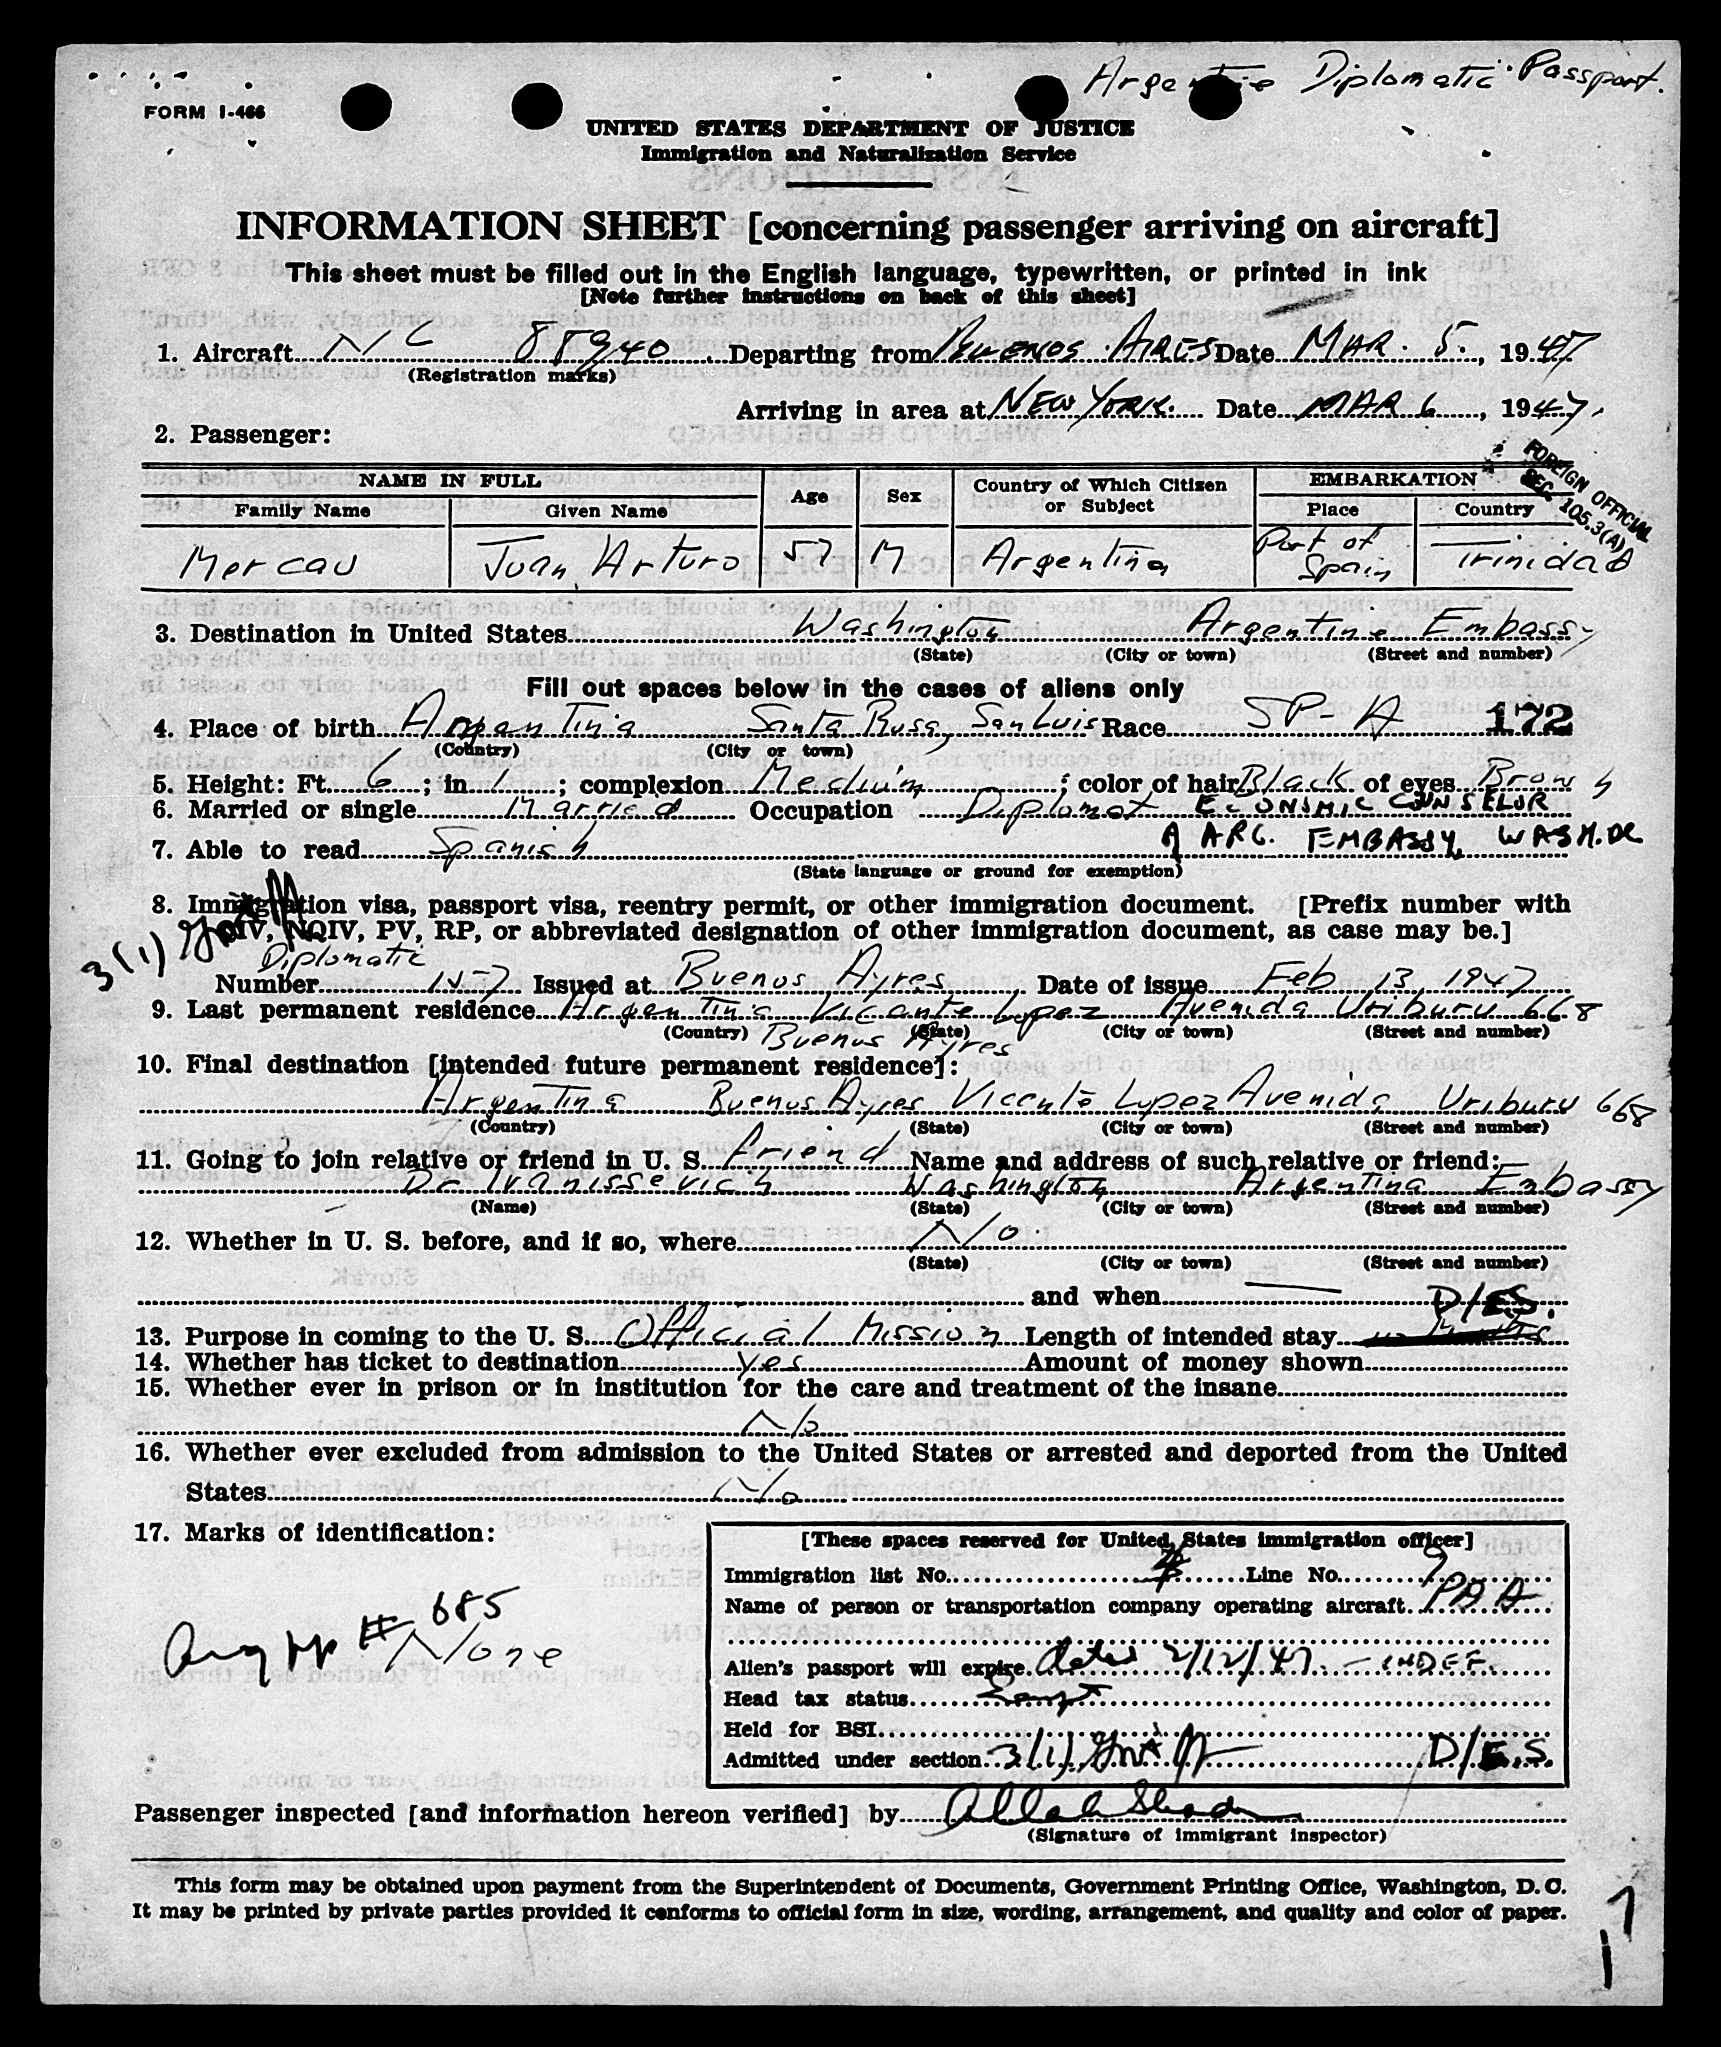 Argentine Diplomatic Passport.
FORM I-466
UNITED STATES DEPARTMENT OF JUSTICE
Immigration and Naturalization Service
INFORMATION SHEET [concerning passenger arriving on aircraft]
This sheet must be filled out in the English language, typewritten, or printed in ink
[Note further instructions on back of this sheet]
1. Aircraft NC 88940. Departing from BUENOS AIRES Date MAR. 5., 1947
(Registration marks)
Arriving in area at NEW YORK. Date MAR 6, 1947.
2. Passenger:
FOREIGN OFFICIAL
SEC. 105.3(A)
NAME IN FULL Age Sex Country of Which Citizen or Subject EMBARKATION
Family Name Given Name Place Country
Mercau Juan Arturo 57 M Argentina Port of Spain Trinidad
3. Destination in United States Washington Argentine Embassy
(State) (City or town) (Street and number)
Fill out spaces below in the cases of aliens only
4. Place of birth Argentina Santa Rosa, San Luis Race SP-A 172
(Country) (City or town)
5. Height: Ft. 6; in 1; complexion Medium; color of hair Black of eyes Brown
6. Married or single Married Occupation Diplomat ECONOMIC COUNSELOR
7. Able to read Spanish ARG. EMBASSY, WASH. DC
(State language or ground for exemption)
8. Immigration visa, passport visa, reentry permit, or other immigration document. [Prefix number with
QIV, NQIV, PV, RP, or abbreviated designation of other immigration document, as case may be.]
3(1)
Diplomatic
Number 157 Issued at Buenos Ayres Date of issue Feb 13, 1947
9. Last permanent residence Argentina Vicente Lopez Avenida Uriburu 668
(Country) (State) (City or town) (Street and number)
Buenos Ayres
10. Final destination [intended future permanent residence]:
Argentina Buenos Ayres Vicente Lopez Avenida Uriburu 668
(Country) (State) (City or town) (Street and number)
11. Going to join relative or friend in U. S. friend Name and address of such relative or friend:
Dr Ivanissevich Washington Argentina Embassy
(Name) (State) (City or town) (Street and number)
12. Whether in U. S. before, and if so, where No.
(State) (City or town) (Street and number)
and when —
D/ES.
13. Purpose in coming to the U. S. Official Mission Length of intended stay
14. Whether has ticket to destination yes Amount of money shown
15. Whether ever in prison or in institution for the care and treatment of the insane
No
16. Whether ever excluded from admission to the United States or arrested and deported from the United
States No
17. Marks of identification:
Arg pp # 685
None
[These spaces reserved for United States immigration officer]
Immigration list No. Line No. 9
Name of person or transportation company operating aircraft. PAA
Alien's passport will expire. dated 2/12/47. - INDEF.
Head tax status Exempt
Held for BSI
Admitted under section 3(1) D/E.S.
Passenger inspected [and information hereon verified] by
(Signature of immigrant inspector)
This form may be obtained upon payment from the Superintendent of Documents, Government Printing Office, Washington, D. C.
It may be printed by private parties provided it conforms to official form in size, wording, arrangement, and quality and color of paper.